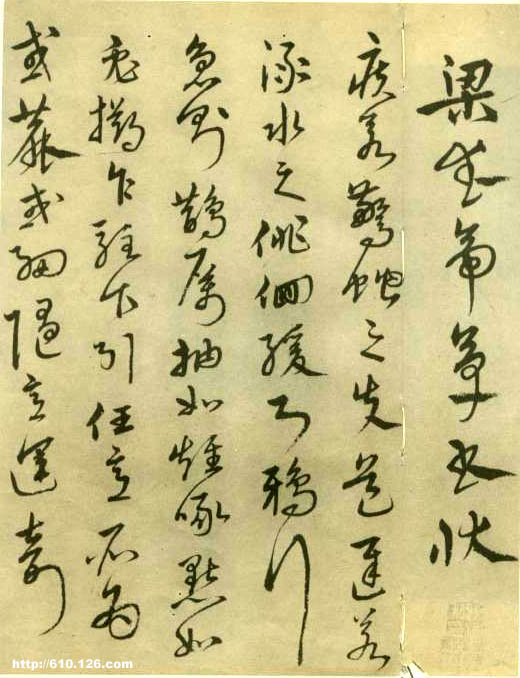 梁武帝草書狀
疾若驚蛇之失道遲若
淥水之徘徊緩則鴉行
急則鵲厲抽如雉啄點如
兔擲乍駐乍引任意所為
或麁或細隨意運奇
http://610.126.com